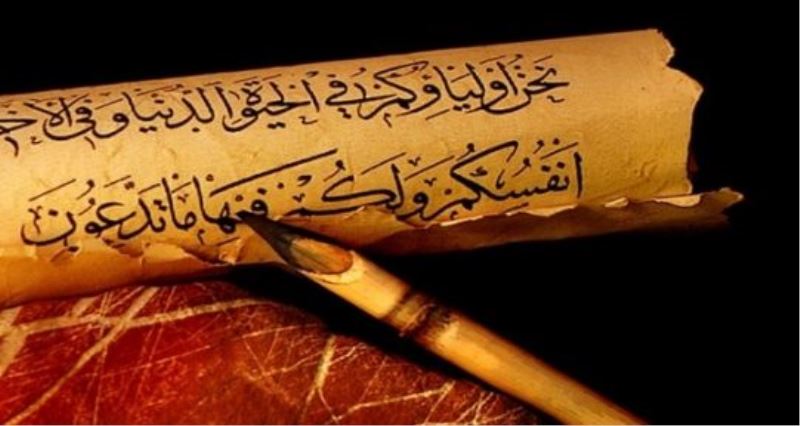 نَحْنُ أَوْلِيَاؤُكُمْ فِي الْحَيَوةِ الدُّنْيَا وَفِي الْآخ
أَنْفُسُكُمْ وَلَكُمْ فِيهَا مَا تَدَّعُونَ